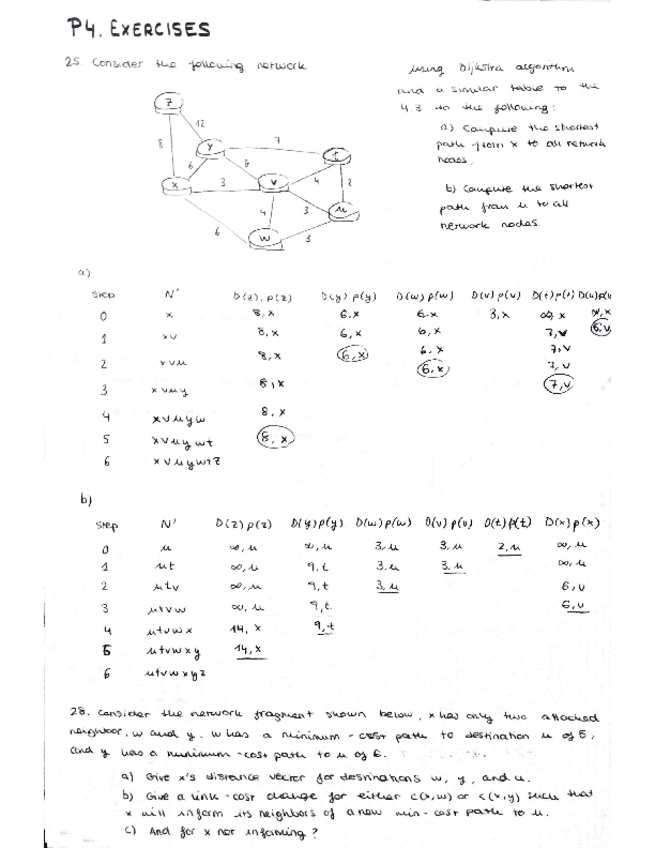 P4. EXERCISES
25. Consider the following network
using Dijkstra algorithm
and a similar table to the
4.3 do the following:
a) Compute the shortest
path from x to all network
nodes.
b) Compute the shortest
path from u to all
network nodes.
z
12
8
y
7
t
6
8
x
3
v
4
2
4
3
u
6
w
3
a)
Step N' D(z), p(z) D(y) p(y) D(w) p(w) D(v) p(v) D(t) p(t) D(u) p(u
0 x 8, x 6, x 6, x 3, x ∞, x ∞, x
1 xv 8, x 6, x 6, x 7, v 6, v
2 xvu 8, x 6, x 6, x 7, v
3 xvuy 8, x 6, x 7, v
4 xvuyw 8, x 7, v
5 xvuywt 8, x
6 xvuywtz
b)
Step N' D(z) p(z) D(y) p(y) D(w) p(w) D(v) p(v) D(t) p(t) D(x) p(x)
0 u ∞, u ∞, u 3, u 3, u 2, u ∞, u
1 ut ∞, u 9, t 3, u 3, u ∞, u
2 utv ∞, u 9, t 3, u 6, v
3 utvw ∞, u 9, t 6, v
4 utvwx 14, x 9, t
5 utvwxy 14, x
6 utvwxyz
28. Consider the network fragment shown below, x has only two attached
neighbor, w and y. w has a minimum-cost path to destination u of 5,
and y has a minimum-cost path to u of 6.
a) Give x's distance vector for destinations w, y, and u.
b) Give a link-cost change for either c(x,w) or c(x,y) such that
x will inform its neighbors of a new min-cost path to u.
c) And for x not informing?